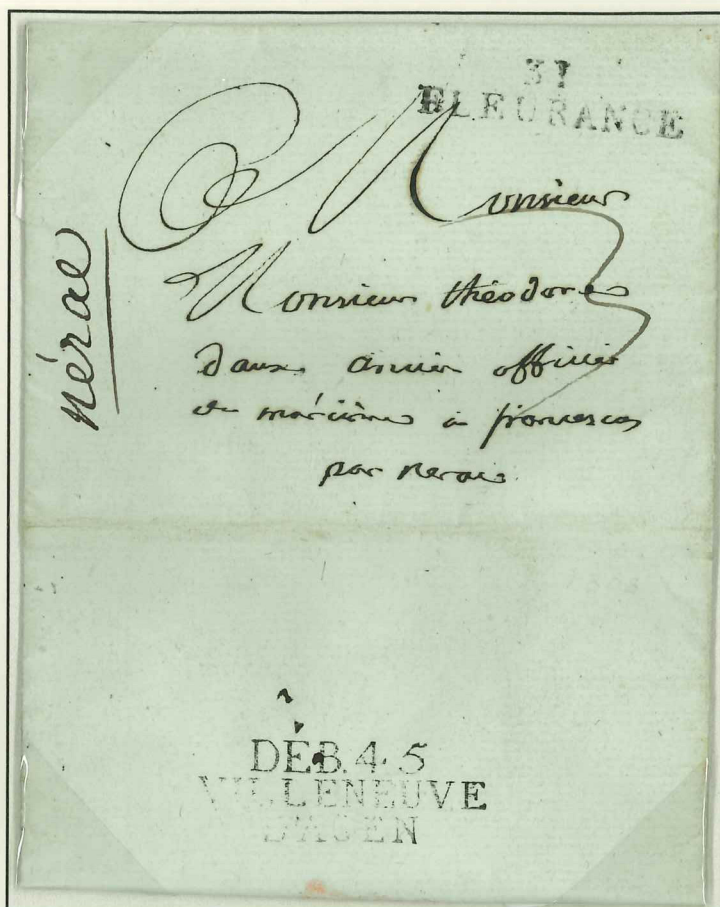 31
FLEURANCE
Monsieur
Monsieur théodore
daux ancien officier
de à francescas
par nerac
nérac
DÉB. 45
VILLENEUVE
D'AGEN